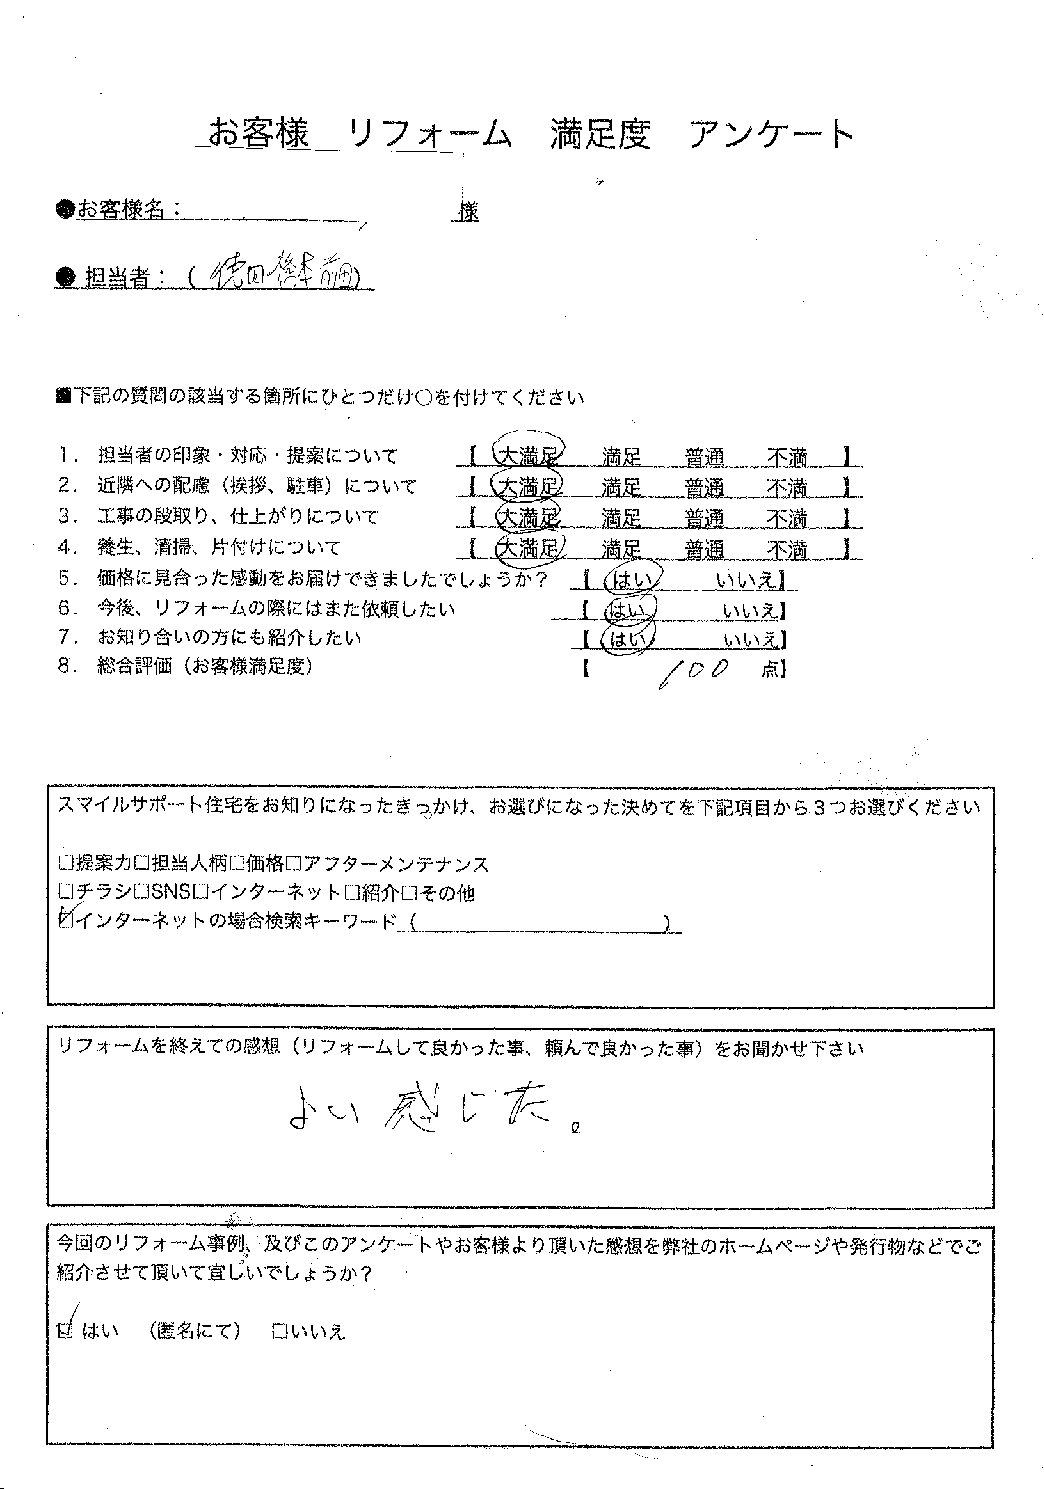 お客様 リフォーム 満足度 アンケート
●お客様名： 様
● 担当者：（徳田 橋本 前田）
■下記の質問の該当する箇所にひとつだけ○を付けてください
1. 担当者の印象・対応・提案について 【 大満足 満足 普通 不満 】
2. 近隣への配慮（挨拶、駐車）について 【 大満足 満足 普通 不満 】
3. 工事の段取り、仕上がりについて 【 大満足 満足 普通 不満 】
4. 養生、清掃、片付けについて 【 大満足 満足 普通 不満 】
5. 価格に見合った感動をお届けできましたでしょうか？ 【 はい いいえ】
6. 今後、リフォームの際にはまた依頼したい 【 はい いいえ】
7. お知り合いの方にも紹介したい 【 はい いいえ】
8. 総合評価（お客様満足度） 【 100 点】
スマイルサポート住宅をお知りになったきっかけ、お選びになった決めてを下記項目から３つお選びください
□提案力□担当人柄□価格□アフターメンテナンス
□チラシ□SNS□インターネット□紹介□その他
☑インターネットの場合検索キーワード（ ）
リフォームを終えての感想（リフォームして良かった事、頼んで良かった事）をお聞かせ下さい
よい感じた。
今回のリフォーム事例、及びこのアンケートやお客様より頂いた感想を弊社のホームページや発行物などでご
紹介させて頂いて宜しいでしょうか？
☑ はい （匿名にて） □いいえ